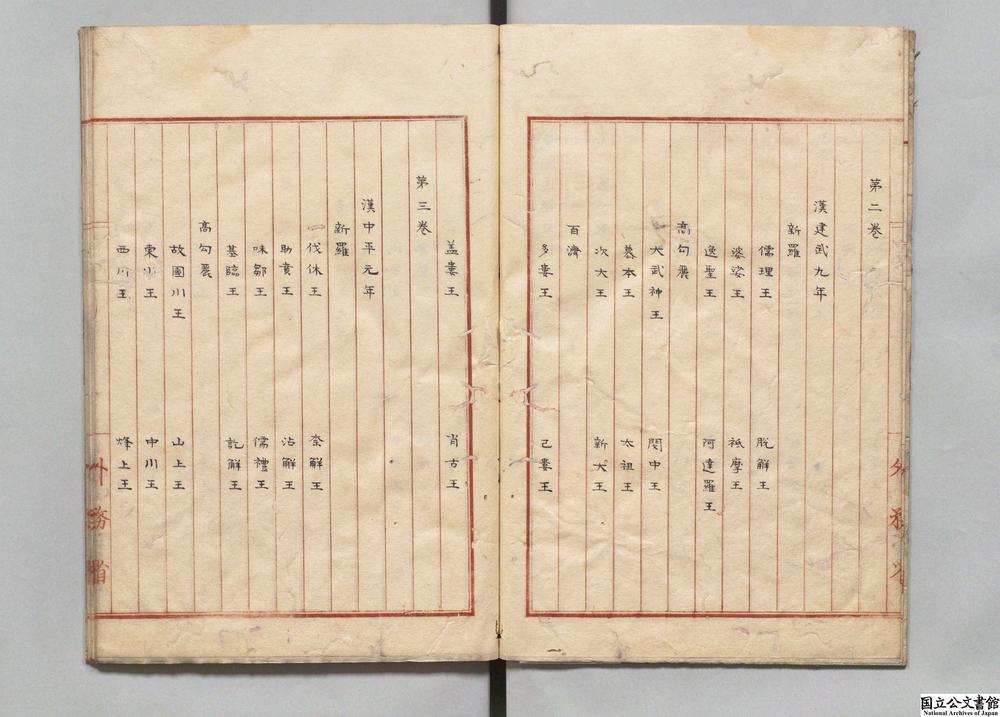 第二卷
漢建武九年
新羅
儒理王 脫解王
婆娑王 祗摩王
逸聖王 阿達羅王
高勾麗
大武神王 閔中王
慕本王 太祖王
次大王 新大王
百濟
多婁王 己婁王
盖婁王 肖古王
第三卷
漢中平元年
新羅
伐休王 奈解王
助賁王 沾解王
味鄒王 儒禮王
基臨王 訖解王
高勾麗
故國川王 山上王
東川王 中川王
西川王 烽上王
外務省
外務省
国立公文書館
National Archives of Japan